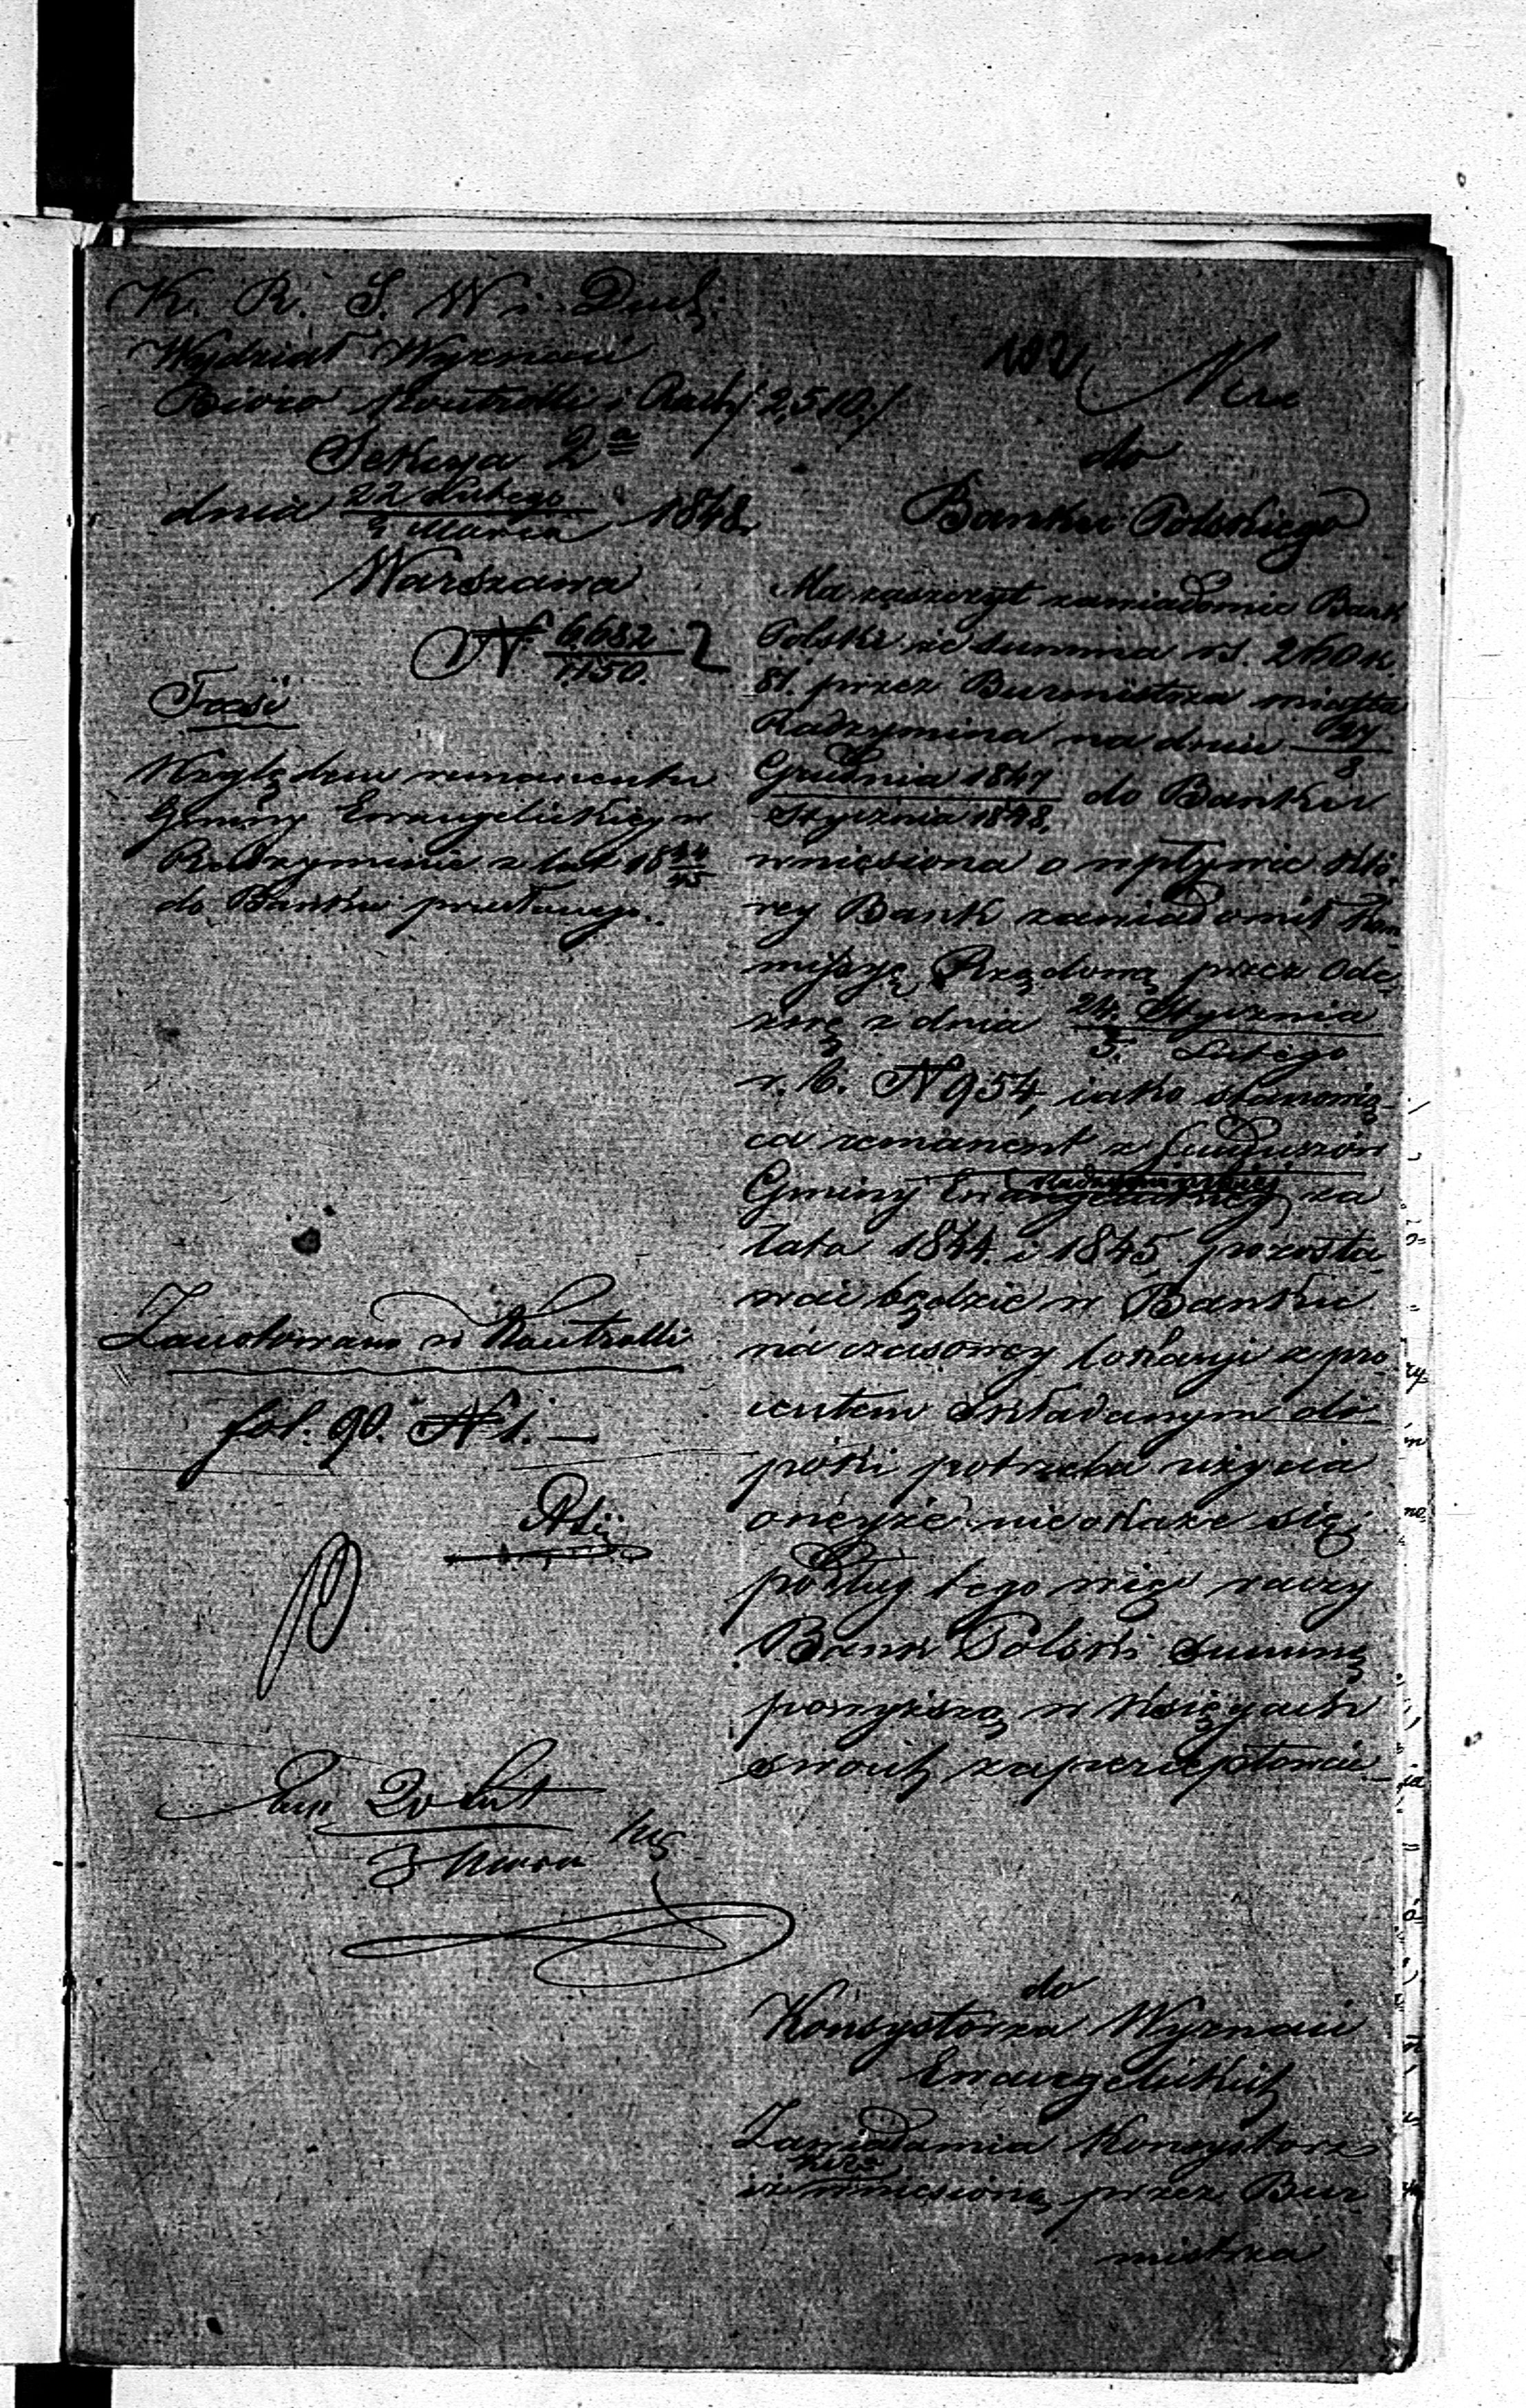 K. R. S. W. i Duch.
Wydział Wyznań
Biuro Kontrolli i Rach. 2,510.
Sekcya 2a
dnia 22 Lutego
Marca 1848
Warszawa
N 6682
1150.
Treść
Względem remanentu
Gminy Ewangelickiey w
Radzyminie z lat 1844
45
do Banku
Zanotowano w Kontrolli
fol. 90. N 1.
20 Lut
3 Marca
do
Banku Polskiego
Ma zaszczyt zawiadomić Bank
Polski że summa rs. 260 k.
81. przez Burmistrza miasta
Radzymina na dniu 27
8
Grudnia 1847
Stycznia 1848. do Banku
wniesiona o wpływie któ-
rey Bank zawiadomił Kom-
missyę Rządową przez Ode-
zwę z dnia 24. Stycznia
5. Lutego
r. b. N 954, iako stanowią-
ca remanent z funduszów
Gminy Ewangelickiey za
lata 1844. i 1845, pozosta-
wać będzie w Banku
na czasowey lokacyi z pro-
centem składanym do-
póki potrzeba użycia
oneyże nie okaże się,
podług tego więc raczy
Bank Polski summę
powyższą w księgach
swoich
do
Konsystorza Wyznań
Ewangelickich
Zawiadamia Konsystorz
iż wniesioną przez Bur-
mistrza